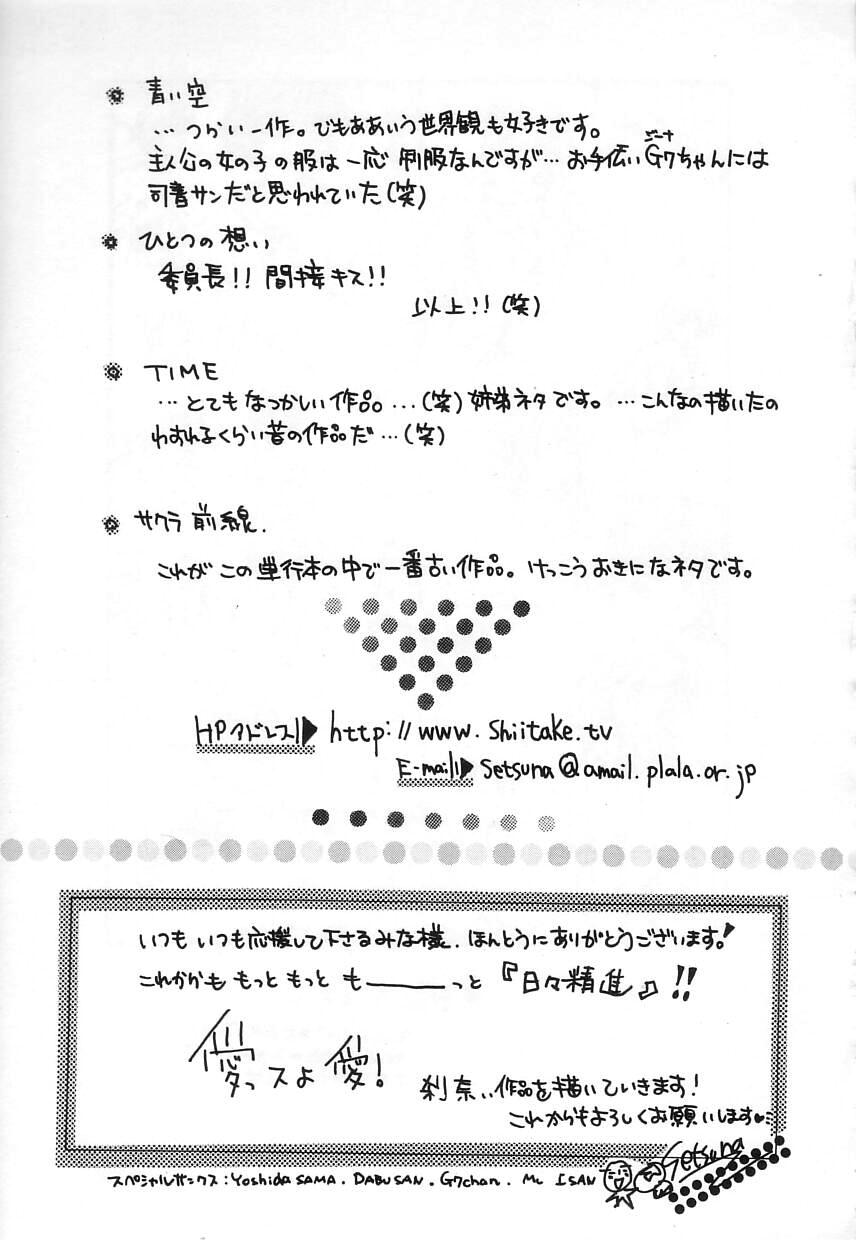 青い空
…つらい一作。でもああいう世界観も好きです。
ジーナ
主人公の女の子の服は一応制服なんですが…お手伝いG7ちゃんには
司書サンだと思われていた(笑)
ひとつの想い
委員長!! 間接キス!!
以上!! (笑)
TIME
…とてもなつかしい作品…(笑)姉弟ネタです。…こんなの描いたの
わすれるくらい昔の作品だ…(笑)
サクラ前線.
これがこの単行本の中で一番古い作品。けっこうおきになネタです。
HPアドレス http://www.Shiitake.tv
E-mail Setsuna@amail.plala.or.jp
いつもいつも応援して下さるみな様. ほんとうにありがとうございます。
これからも もっと もっと も――っと 『日々精進』!!
愛っスよ 愛!
刹奈.. 作品を描いていきます!
これからもよろしくお願いします
Setsuna
スペシャルサンクス:Yoshida SAMA. DABUSAN. G7chan. Mc ISAN